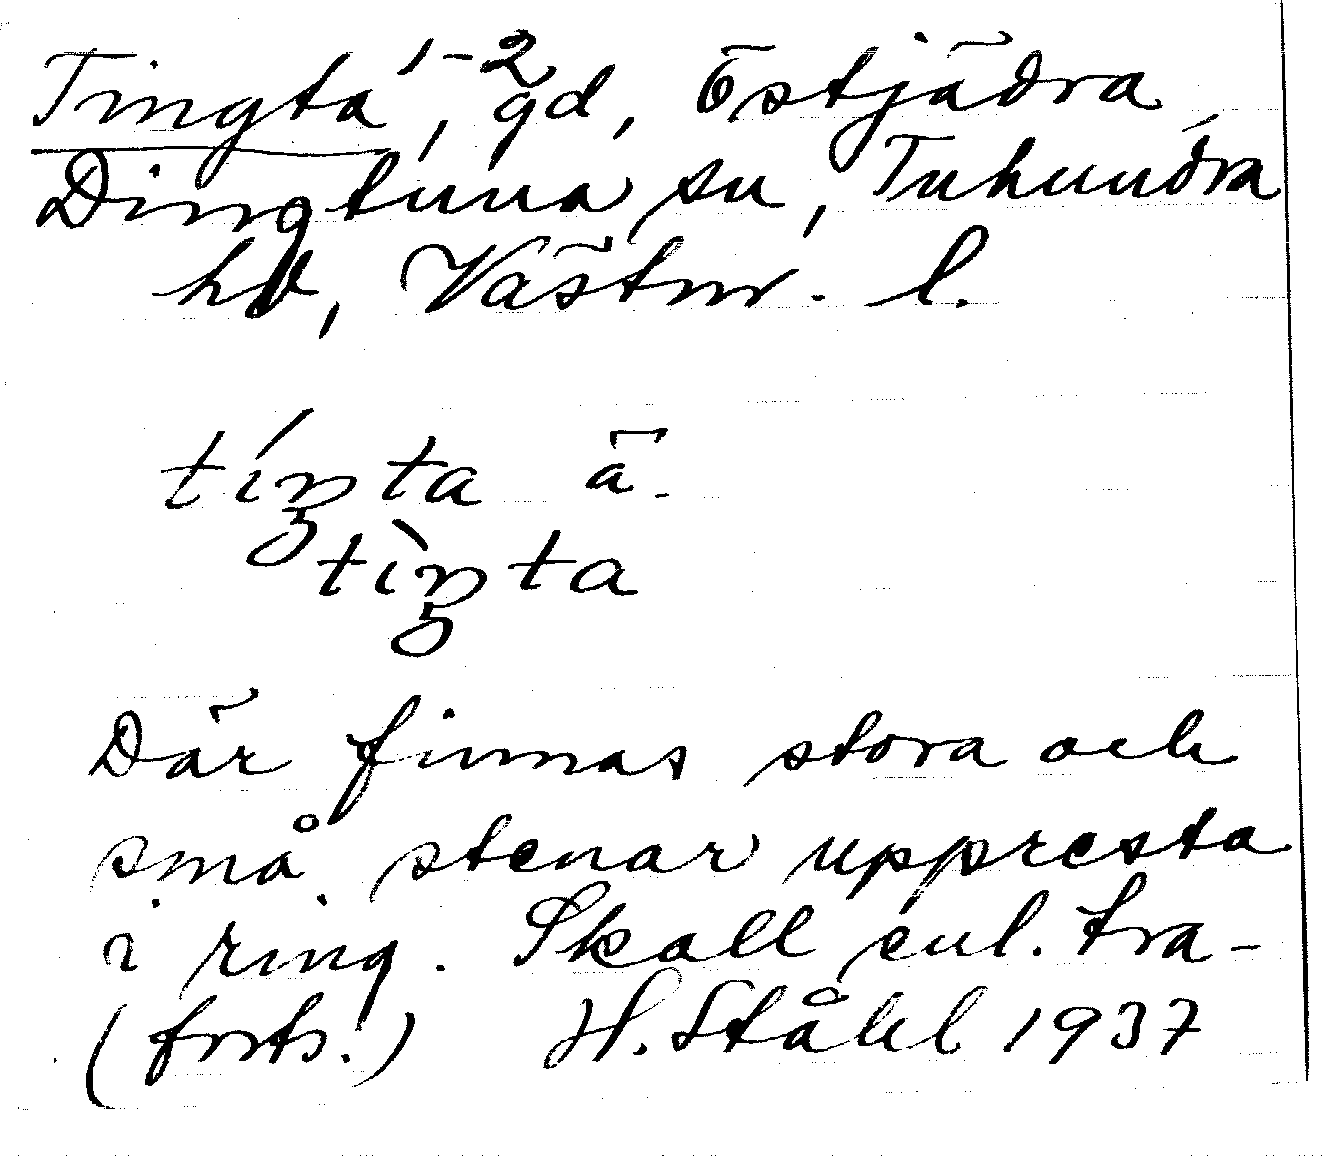 Tingta 1-2, gd, Östjädra,
Dingtuna sn, Tuhundra
hd, Västm. l.
tíŋta ä.
tìŋta
Där finnas stora och
små stenar uppresta
i ring. Skall enl. tra-
(forts.) H. Ståhl 1937